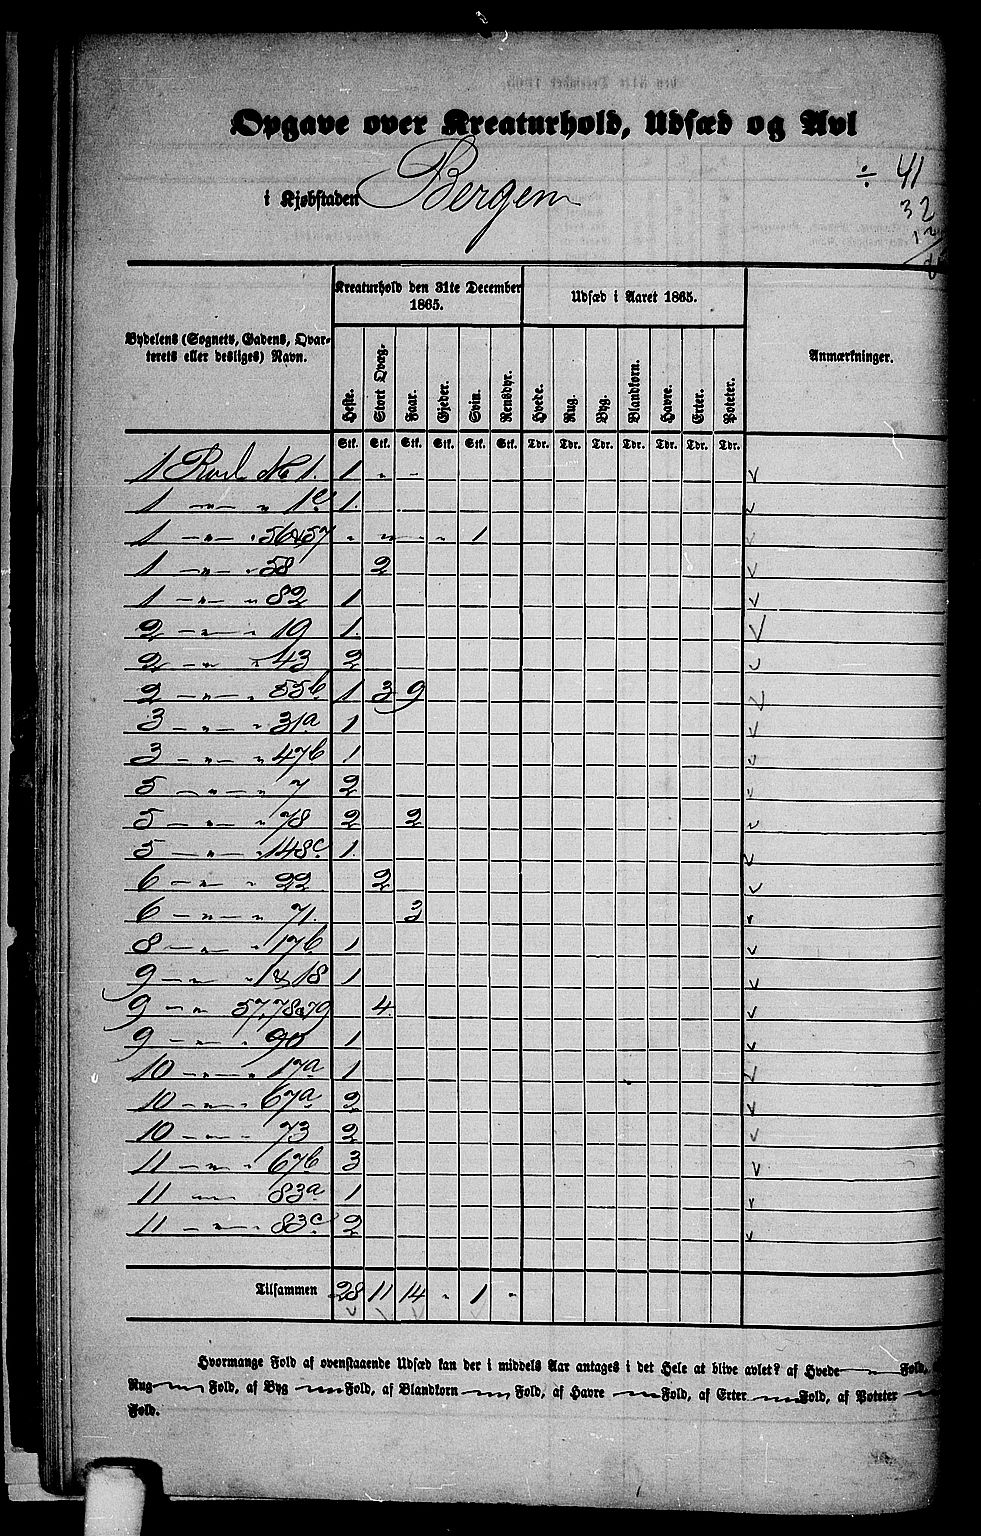 Opgave over Kreaturhold, Udsæd og Avl
i Kjøbstaden Bergen
÷ 41
32
Kreaturhold den 31te December 1865.
Udsæd i Aaret 1865.
Bydelens (Sognets, Gadens, Qvar-
terets eller desliges) Navn.
Anmærkninger.
Heste. Stort Qvæg. Faar. Gjeder. Svin. Rensdyr. Hvede. Rug. Byg. Blandkorn. Havre. Erter. Poteter.
Stk. Stk. Stk. Stk. Stk. Stk. Tdr. Tdr. Tdr. Tdr. Tdr. Tdr. Tdr.
1 Rode No 1. 1 " " v
1 — " — " 1c 1. v
1 — " — " 56&57 " " " " 1 v
1 — " — " 58 2 v
1 — " — " 82 1 v
2 — " — " 19 1. v
2 — " — " 43 2 v
2 — " — " 55b 1 3 9 v
3 — " — " 31a 1 v
3 — " — " 47b 1 v
5 — " — " 7 2 v
5 — " — " 78 2 2 v
5 — " — " 148c 1. v
6 — " — " 22 2 v
6 — " — " 71. 3 v
8 — " — " 17b 1 v
9 — " — " 1&18 1 v
9 — " — 57,78&79 4 v
9 — " — " 90 1 v
10 — " — " 17a 1 v
10 — " — " 67a 2 v
10 — " — " 73 2 v
11 — " — " 67b 3 v
11 — " — 83a 1 v
11 — " — " 83c 2 v
Tilsammen 28 11 14 " 1 "
Hvormange Fold af ovenstaaende Udsæd kan der i middels Aar antages i det Hele at blive avlet? af Hvede — " — Fold,
Rug — " — Fold, af Byg — " — Fold, af Blandkorn — " — Fold, af Havre — " — Fold, af Erter — " — Fold, af Poteter — " —
Fold.